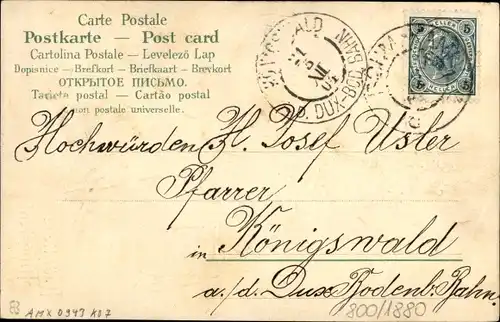 Carte Postale
Postkarte — Post card
Cartolina Postale — Levelező Lap
Dopisnice — Brefkort — Briefkaart — Brevkort
ОТКРЫТОЕ ПИСЬМО.
Tarjeta postal — Cartão postal
Union postale universelle.
KÖNIGSWALD
A.D. DUX-BOD. BAHN
5 HELLER 5
Hochwürden H. Josef Usler
Pfarrer
in Königswald
a./d. Dux Bodenb. Bahn.
AMX 0943 K07
800/1880